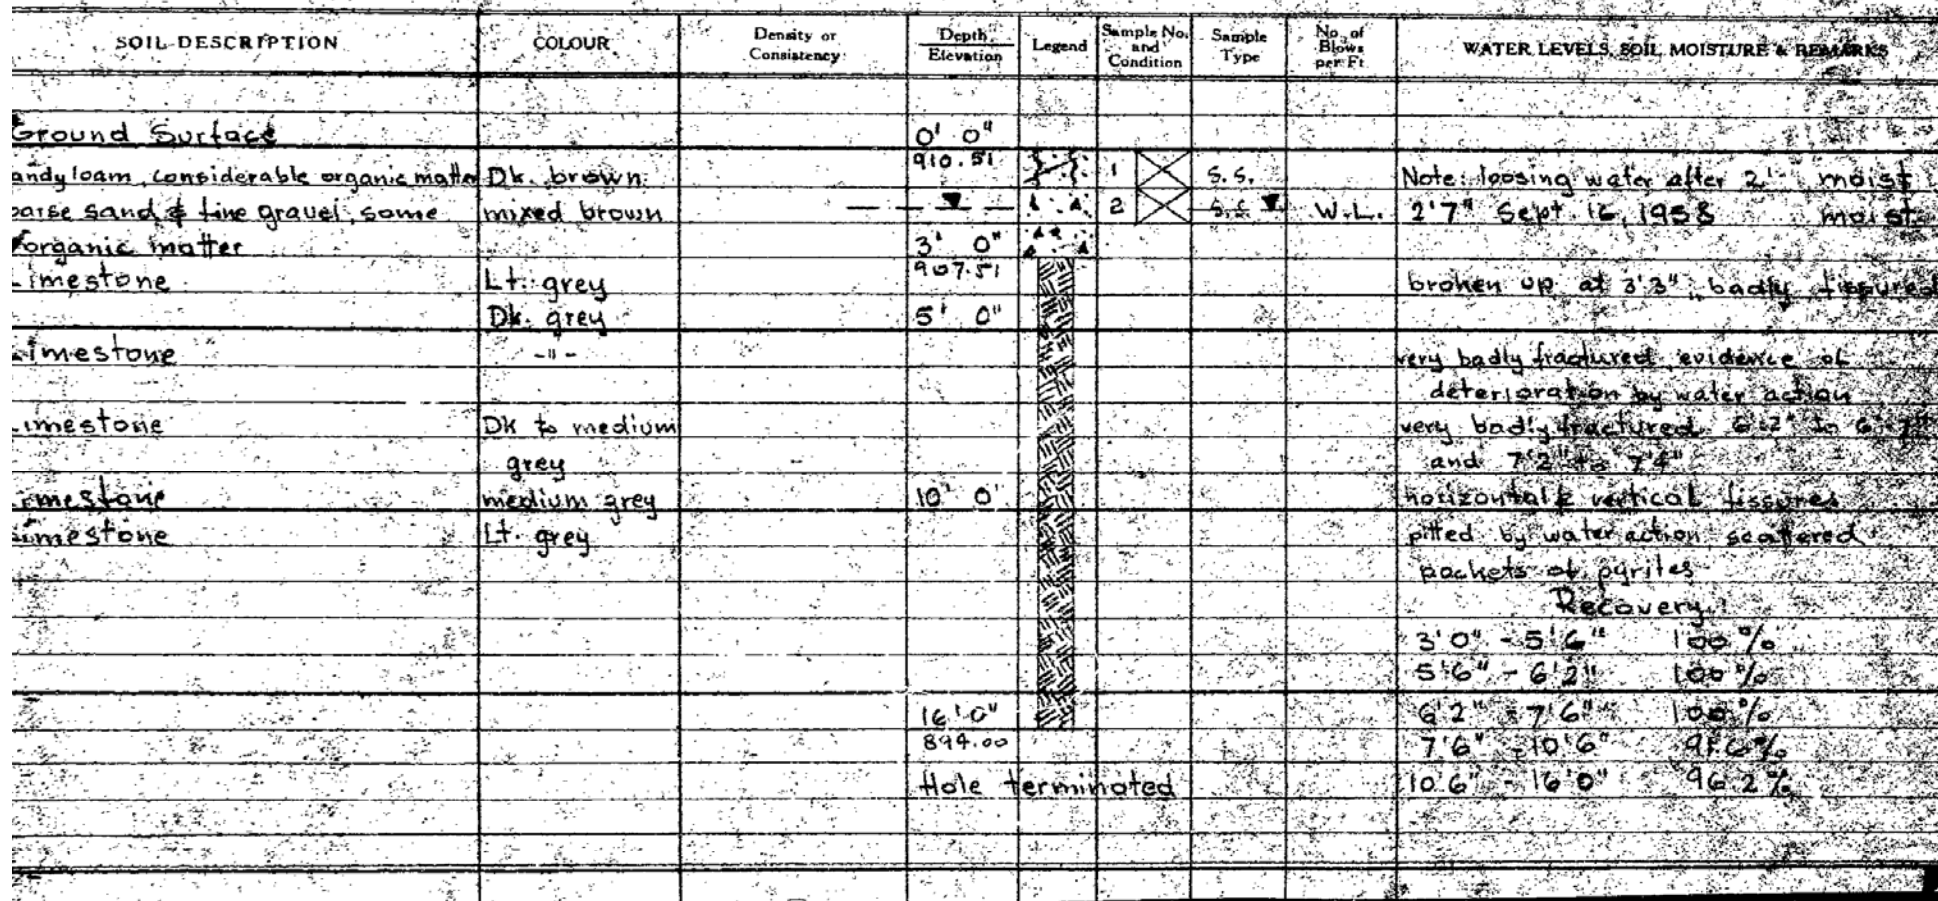 SOIL DESCRIPTION COLOUR Density or Consistency Depth Elevation Legend Sample No. and Condition Sample Type No. of Blows per Ft WATER LEVELS, SOIL MOISTURE & REMARKS
Ground Surface 0' 0"
910.51
andy loam, considerable organic matter Dk. brown 1 S.S. Note: loosing water after 2' moist
oarse sand & fine gravel, some mixed brown 2 S.S. W.L. 2'7" Sept. 16, 1958 moist
organic matter 3' 0"
907.51
imestone Lt. grey broken up at 3'3", badly fissured
Dk. grey 5' 0"
imestone -"- very badly fractured, evidence of
deterioration by water action
imestone Dk to medium very badly fractured 6'2" to 6'7"
grey and 7'2" to 7'4"
imestone medium grey 10' 0' horizontal & vertical fissures
Limestone Lt. grey pitted by water action, scattered
pockets of pyrites
Recovery:
3'0" - 5'6" 100%
5'6" - 6'2" 100%
16'0" 6'2" - 7'6" 100%
894.00 7'6" - 10'6"
Hole terminated 10'6" - 16'0" 96.2%